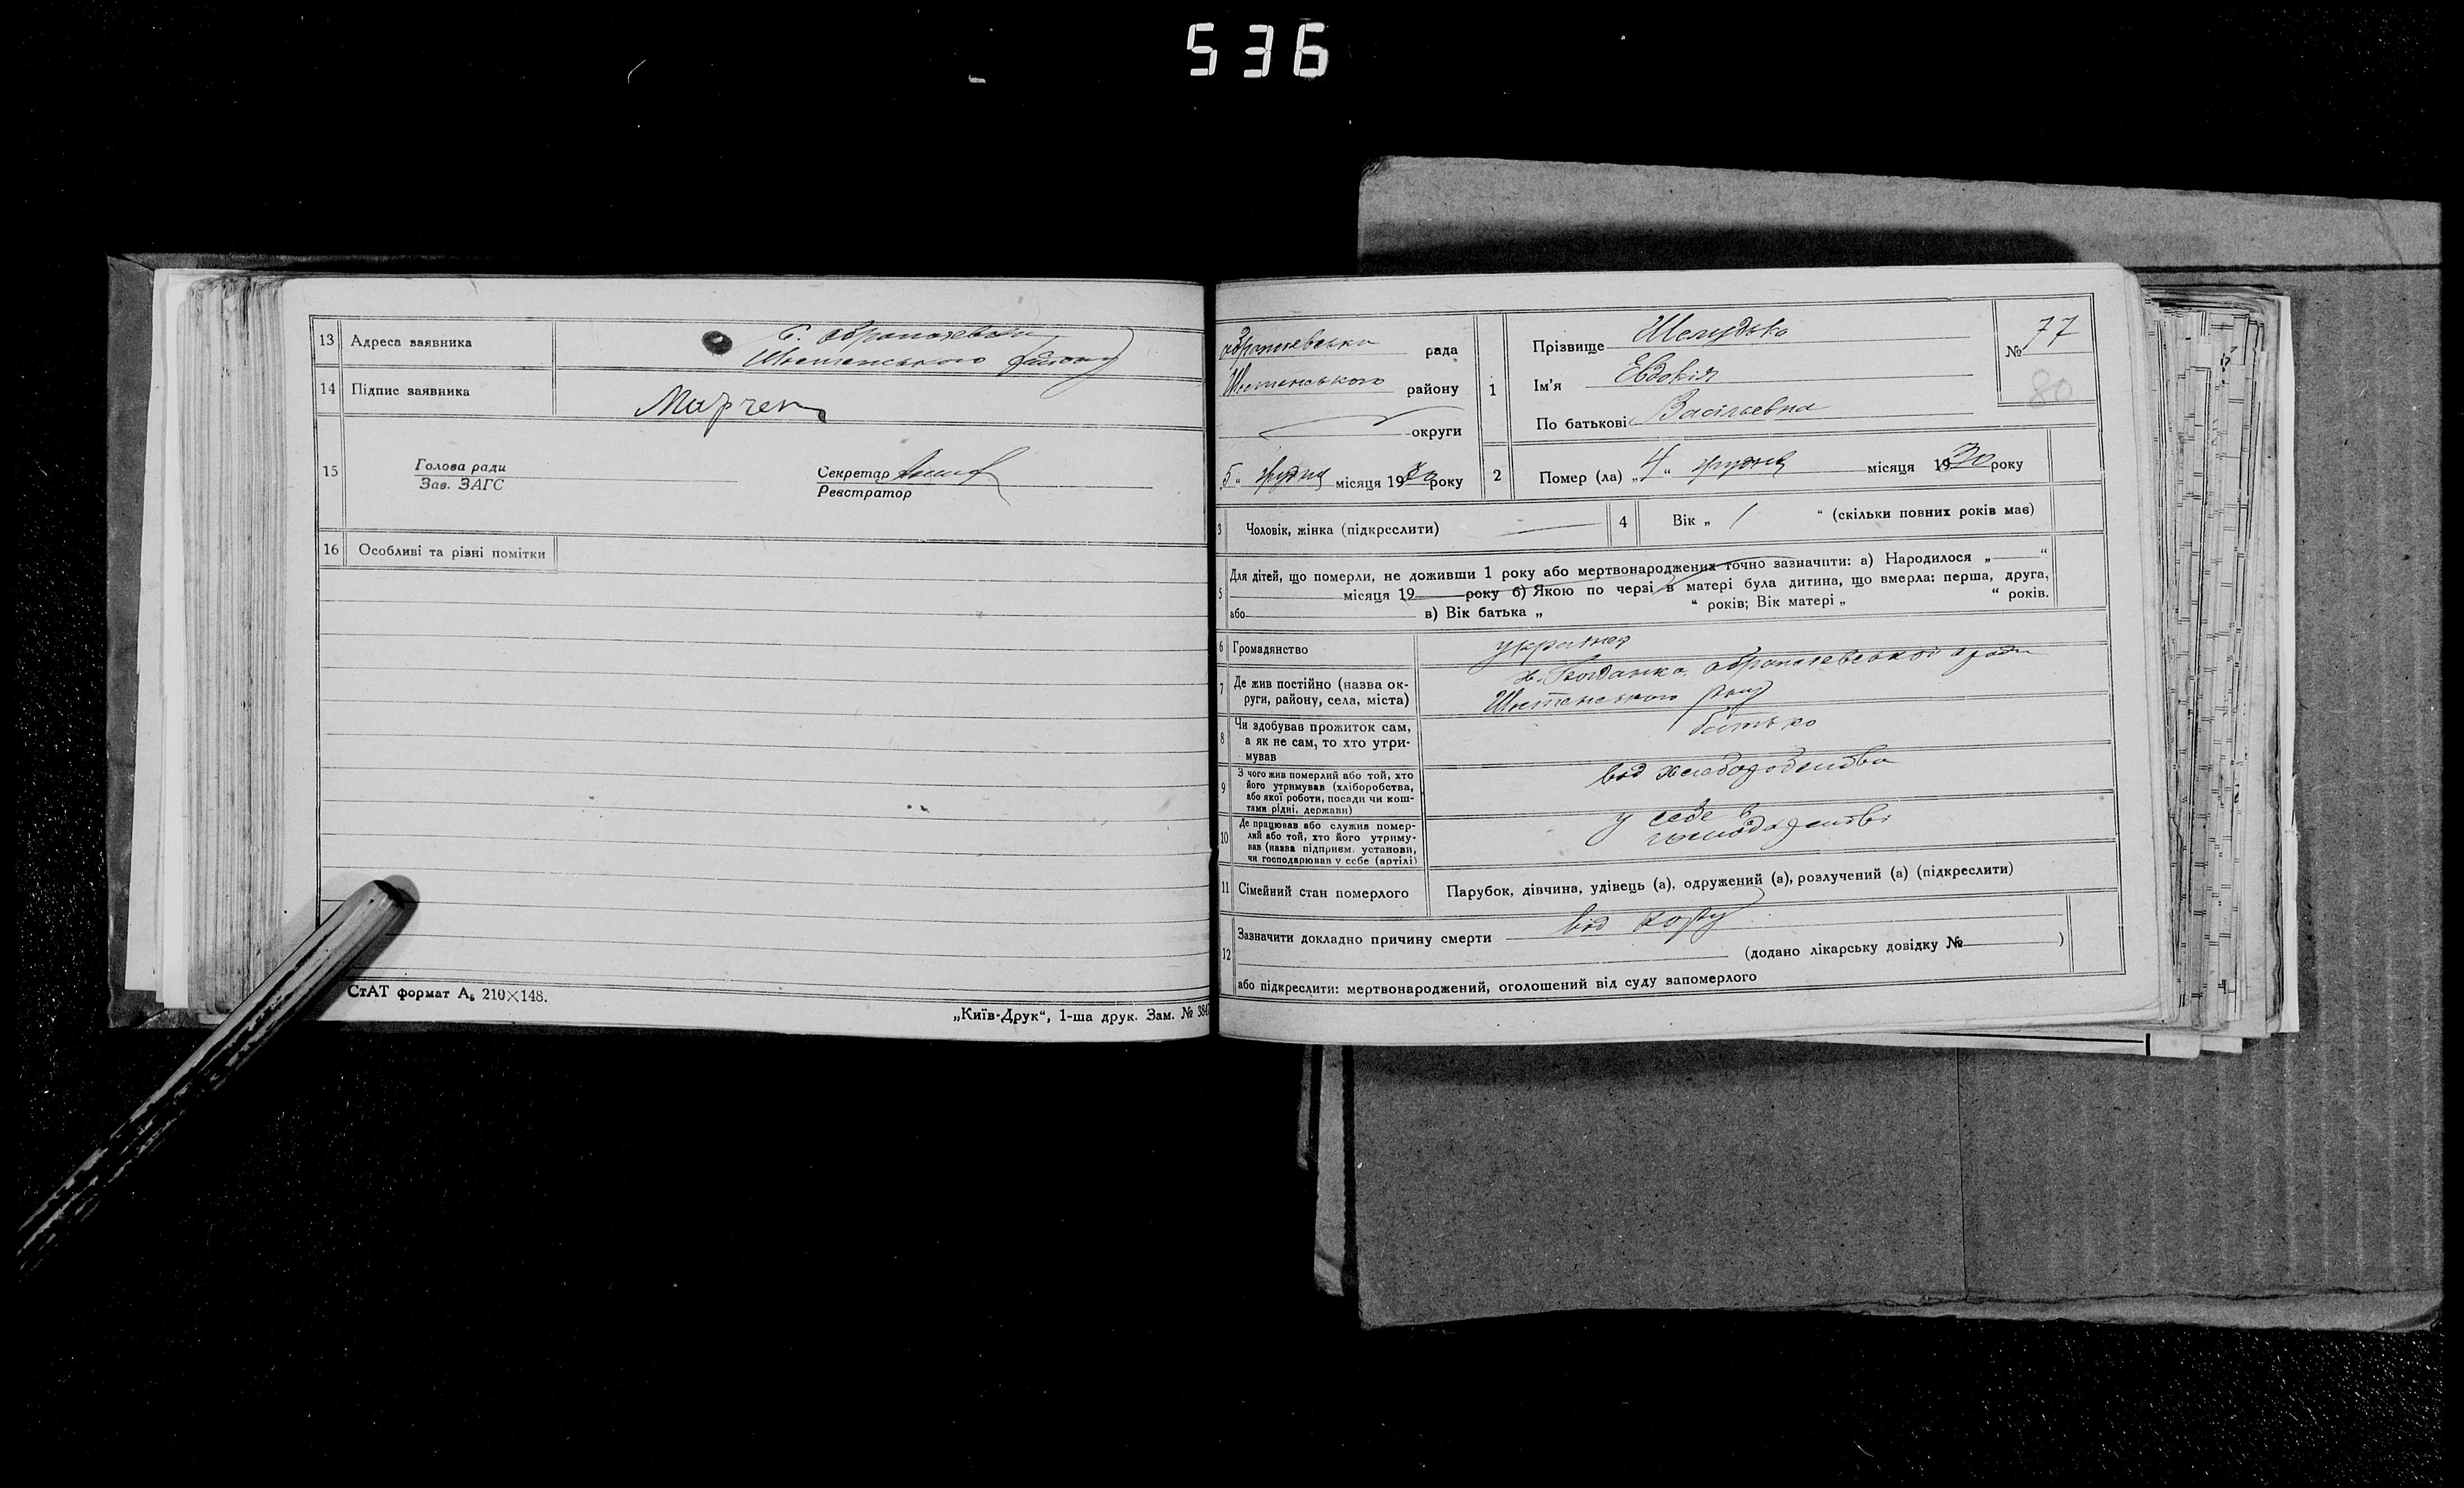 536
13 Адреса заявника
с.
району
14 Підпис заявника
15 Голова ради
Зав. ЗАГС
Секретар
Реєстратор
16 Особливі та різні помітки
СтАТ формат А₅ 210×148.
„Київ-Друк“, 1-ша друк. Зам. №
рада
Шостенського району
округи
„5“ грудня місяця 1930 року
1 Прізвище Шелудько
Ім'я Евдокія
По батькові Васільевна
№ 77
80
2 Помер (ла) „4“ грудня місяця 1930 року
3 Чоловік, жінка (підкреслити)
4 Вік „1“ (скільки повних років має)
5 Для дітей, що померли, не доживши 1 року або мертвонароджених точно зазначити: а) Народилося „ “
місяця 19 року б) Якою по черзі в матері була дитина, що вмерла: перша, друга,
або в) Вік батька „ “ років; Вік матері „ “ років.
6 Громадянство
7 Де жив постійно (назва ок-
руги, району, села, міста)
х. Богданка
Шостенського р-ну
8 Чи здобував прожиток сам,
а як не сам, то хто утри-
мував
батько
9 З чого жив померлий або той, хто
його утримував (хліборобства,
або якої роботи, посади чи кош-
тами рідні, держави)
від хлеборобства
10 Де працював або служив помер-
лий або той, хто його утриму-
вав (назва підприєм. установи,
чи господарював у себе (артілі)
у себе в
господарстві
11 Сімейний стан померлого
Парубок, дівчина, удівець (а), одружений (а), розлучений (а) (підкреслити)
12 Зазначити докладно причину смерти від кору
(додано лікарську довідку № )
або підкреслити: мертвонароджений, оголошений від суду запомерлого